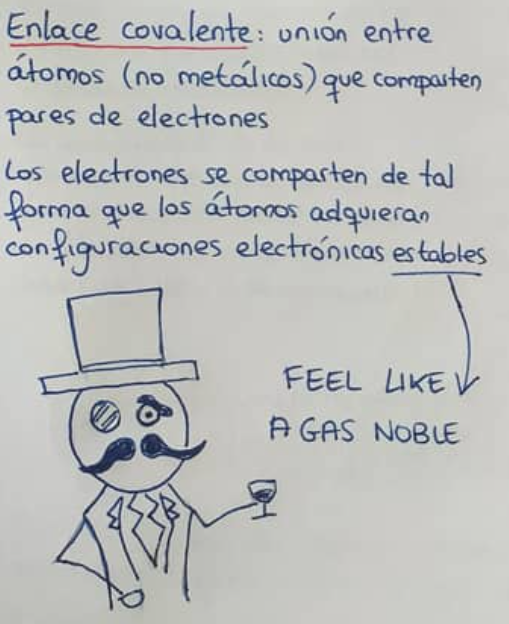 Enlace covalente: unión entre
átomos (no metálicos) que comparten
pares de electrones
Los electrones se comparten de tal
forma que los átomos adquieran
configuraciones electrónicas estables
FEEL LIKE
A GAS NOBLE